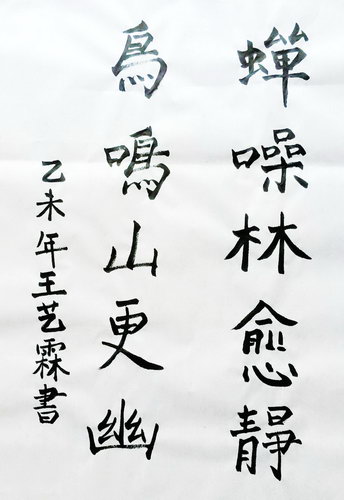 蟬噪林愈靜
鳥鳴山更幽
乙未年王艺霖書